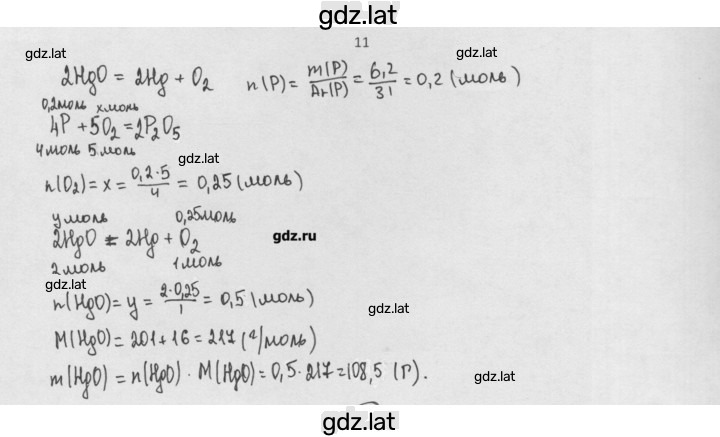 gdz.lat
11
gdz.lat
gdz.lat
2HgO = 2Hg + O₂ n(P) = m(P)/Ar(P) = 6,2/31 = 0,2 (моль)
0,2моль x моль
4P + 5O₂ = 2P₂O₅
4 моль 5 моль
gdz.lat
n(O₂) = x = 0,2·5/4 = 0,25 (моль)
y моль 0,25моль
2HgO = 2Hg + O₂
gdz.ru
2 моль 1 моль
gdz.lat
n(HgO) = y = 2·0,25/1 = 0,5 (моль)
gdz.lat
M(HgO) = 201 + 16 = 217 (г/моль)
m(HgO) = n(HgO) · M(HgO) = 0,5 · 217 = 108,5 (г).
gdz.lat
gdz.lat